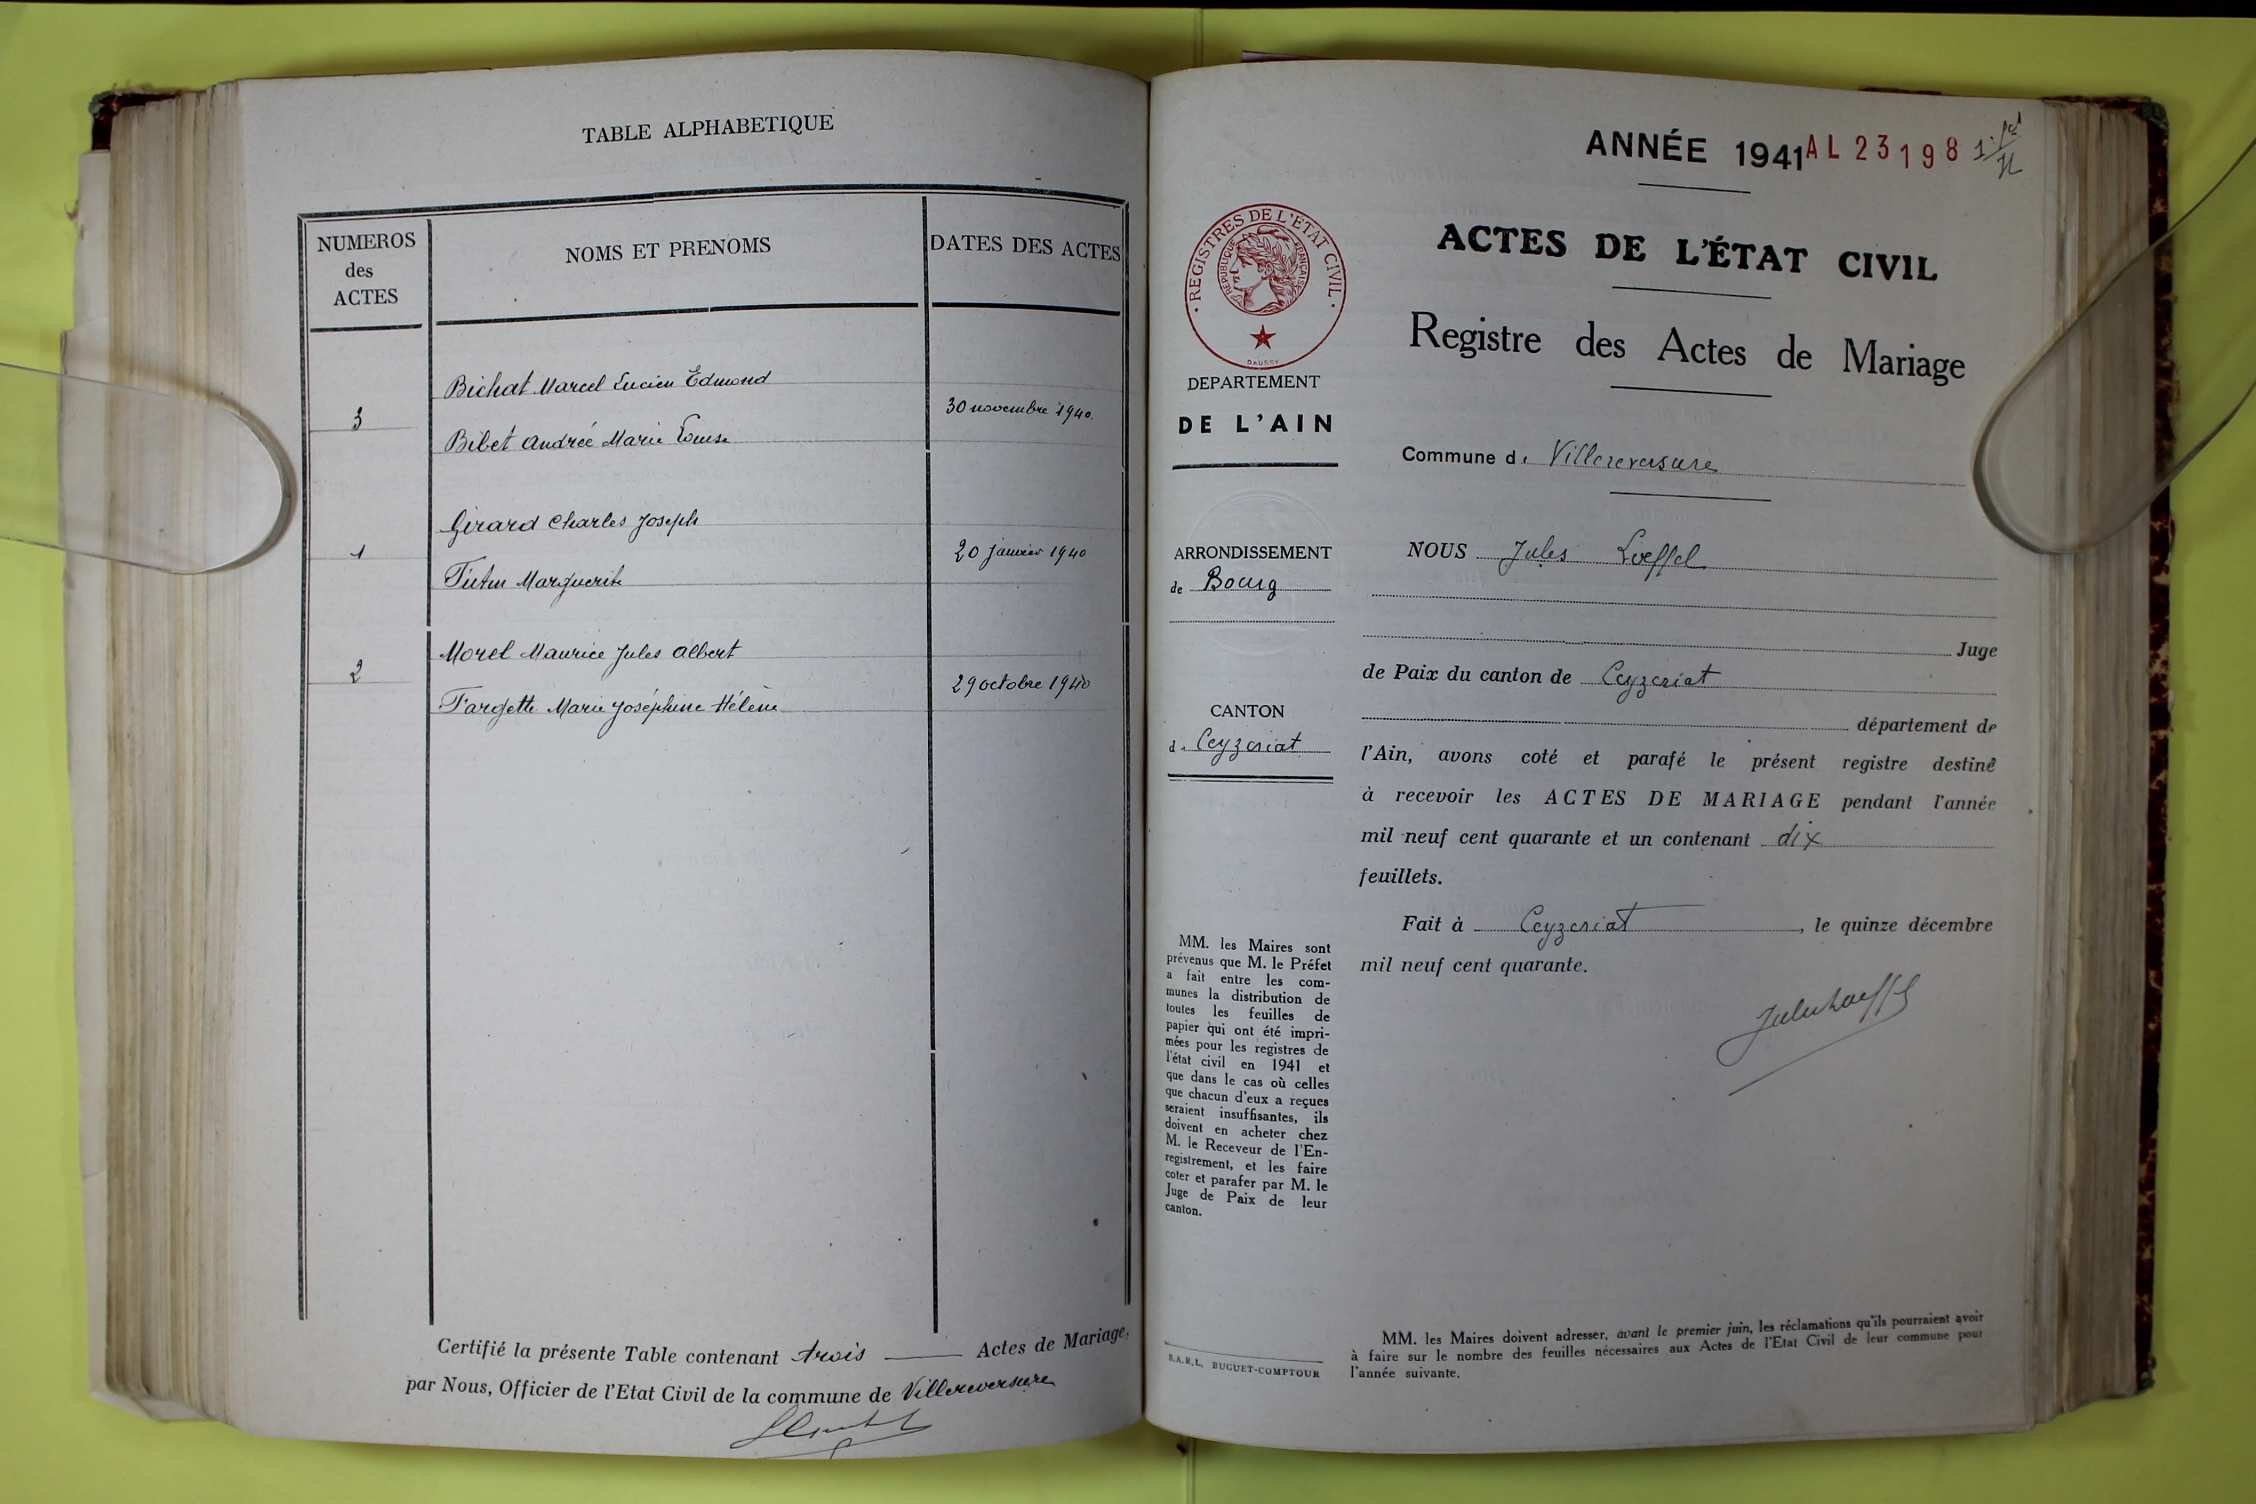 TABLE ALPHABETIQUE
NUMEROS
des
ACTES
NOMS ET PRENOMS
DATES DES ACTES
3
Bichat Marcel Lucien Edmond
Bibet Andrée Marie Louise
30 novembre 1940
1
Girard Charles Joseph
Marguerite
20 janvier 1940
2
Morel Maurice Jules Albert
Fargette Marie Joséphine Hélène
29 octobre 1940
Certifié la présente Table contenant trois Actes de Mariage,
par Nous, Officier de l'Etat Civil de la commune de Villereversure
ANNÉE 1941 AL 23198
REGISTRES DE L'ÉTAT CIVIL
RÉPUBLIQUE FRANÇAISE
DAUSSY
ACTES DE L'ÉTAT CIVIL
Registre des Actes de Mariage
DEPARTEMENT
DE L'AIN
Commune de Villereversure
ARRONDISSEMENT
de Bourg
CANTON
de Ceyzeriat
NOUS Jules Loeffel
Juge
de Paix du canton de Ceyzeriat
département de
l'Ain, avons coté et parafé le présent registre destiné
à recevoir les ACTES DE MARIAGE pendant l'année
mil neuf cent quarante et un contenant dix
feuillets.
Fait à Ceyzeriat, le quinze décembre
mil neuf cent quarante.
Jules Loeffel
MM. les Maires sont
prévenus que M. le Préfet
a fait entre les com-
munes la distribution de
toutes les feuilles de
papier qui ont été impri-
mées pour les registres de
l'état civil en 1941 et
que dans le cas où celles
que chacun d'eux a reçues
seraient insuffisantes, ils
doivent en acheter chez
M. le Receveur de l'En-
registrement, et les faire
coter et parafer par M. le
Juge de Paix de leur
canton.
S.A.R.L. BUGUET-COMPTOUR
MM. les Maires doivent adresser, avant le premier juin, les réclamations qu'ils pourraient avoir
à faire sur le nombre des feuilles nécessaires aux Actes de l'Etat Civil de leur commune pour
l'année suivante.